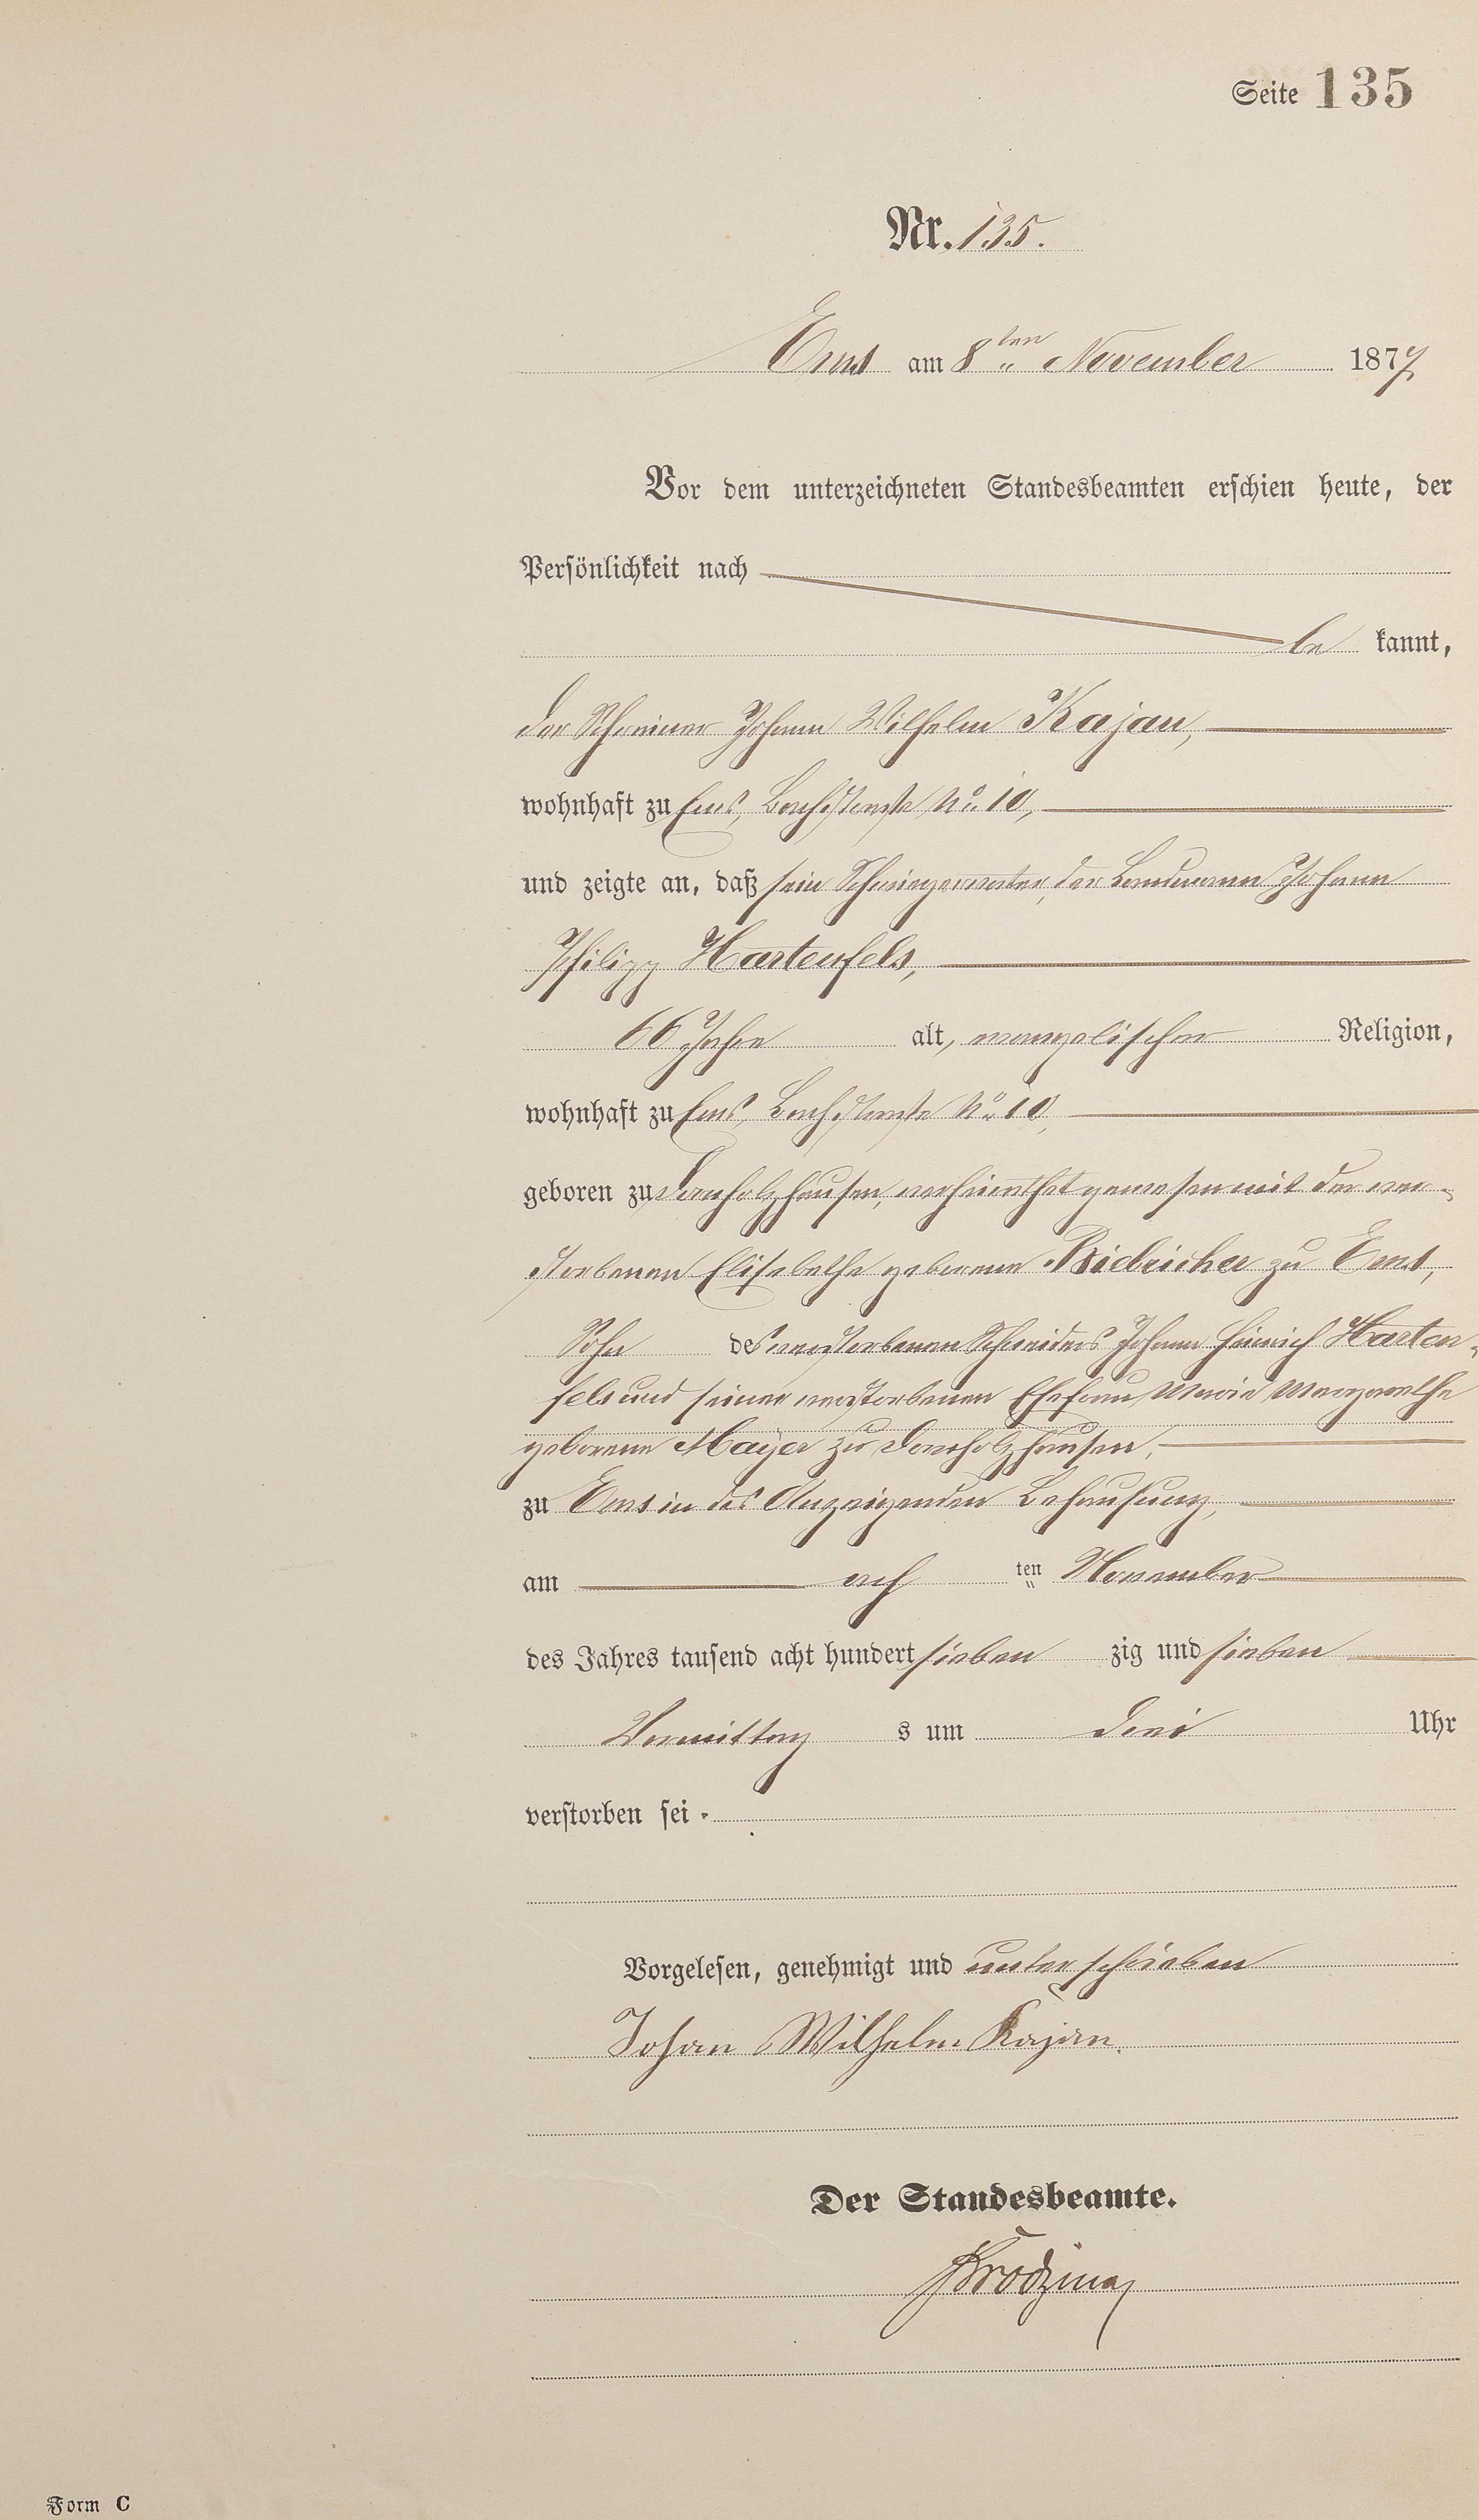 Seite 135
Nr. 135.
Ems am 8ten November 1877
Vor dem unterzeichneten Standesbeamten erschien heute, der
Persönlichkeit nach
be kannt,
der Schreiner Johann Wilhelm Kajan,
wohnhaft zu Ems, Bachstraße No. 10,
und zeigte an, daß sein Schwiegervater, der Landmann Johann
Philipp Hartenfels,
66 Jahre alt, evangelischer Religion,
wohnhaft zu Ems, Bachstraße No. 10,
geboren zu Dornholzhausen, verheirathet gewesen mit der ver-
storbenen Elisabethe geborene Biebricher zu Ems,
Sohn des verstorbenen Schneiders Johann Heinrich Harten-
fels und seiner verstorbenen Ehefrau Marie Margarethe
geborene Mayer zu Dornholzhausen,
zu Ems in des Anzeigenden Behausung,
am ach ten November
des Jahres tausend acht hundert sieben zig und sieben
Vormittag s um drei Uhr
verstorben sei.
Vorgelesen, genehmigt und unterschrieben
Johan Wilhelm Kajan.
Der Standesbeamte.
Form C